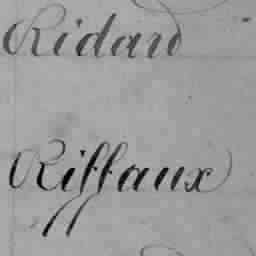 Ridard
Riffaux